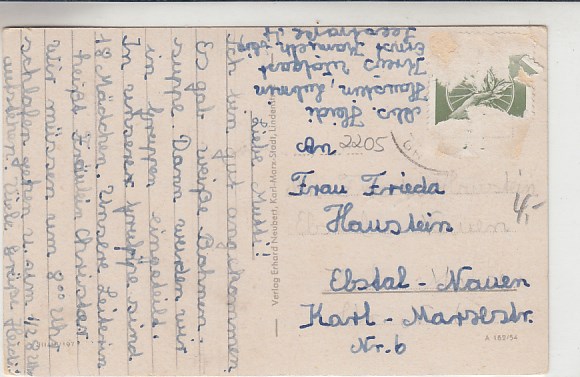 Liebe Mutti!
Ich bin gut angekommen
Es gab weiße Bohnen-
suppe. Dann wurden wir
in Gruppen eingeteilt.
In unserer Gruppe sind
18 Mädchen. Unsere Leiterin
heißt Fräulein Christa.
Wir müssen um 8°° Uhr
schlafen gehen u. um 1/2 8 Uhr
aufstehen. Viele Grüße Heidi
Abs. Heidi
Haustein,
Kreis Wolgast
Ernst
An 2205
Frau Frieda
Haustein
Ebstal-Nauen
Karl-Marxestr.
Nr. 6
4,-
Verlag Erhard Neubert, Karl-Marx-Stadt, Lindenst
A 189/54